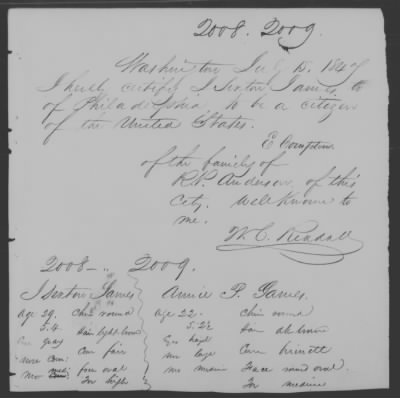 2008. 2009.
Washington July 15. 184
I hereby certify I Sexton James to
of Philadelphia to be a citizen
of the United States.
E Compton
of the family of
R.P. Anderson of this
City. Well known to
me.
W. C. Reddall
2008 - " 2009.
I Sexton James Annie P. James.
Age 29. Chin round age 22. Chin round
5.4 Hair light brown 5.2½ Hair dk brown
Eyes gray Com fair Eyes hazel Com brunett
nose Com: face oval nose large Face round oval.
Mo For high mo medium For medium